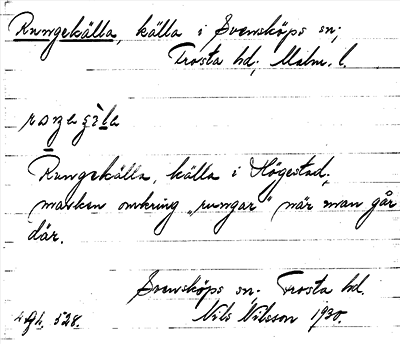 Rungekälla, källa i Svensköps sn;
Frosta hd; Malm. l.
Rungekälla, källa i Högestad;
marken omkring "rungar" när man går
där.
Svensköps sn. Frosta hd.
Nils Nilsson 1930.
528.